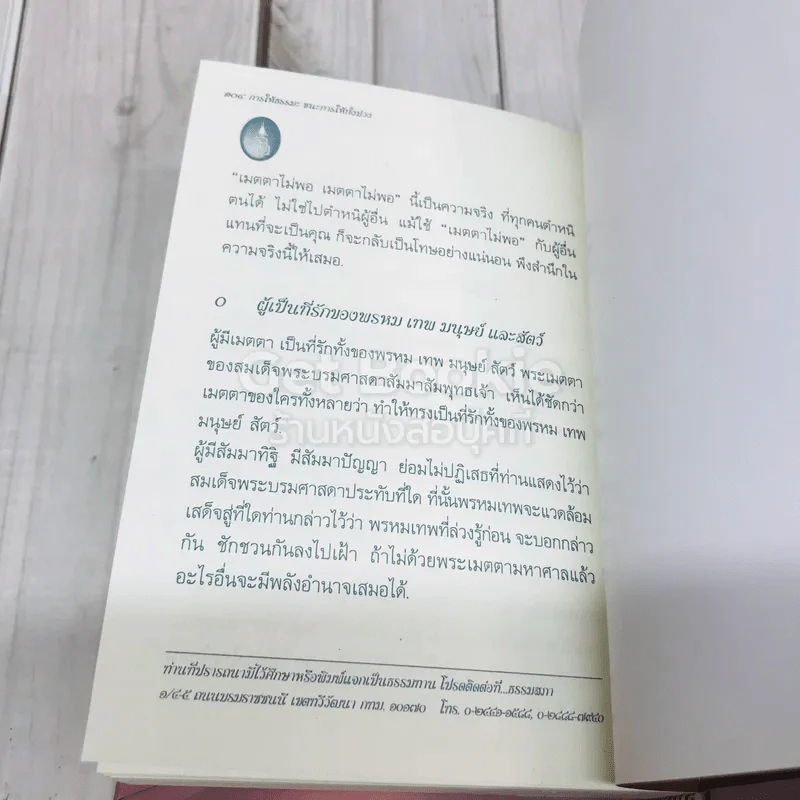 ๑๐๔ การให้ธรรมะ ชนะการให้ทั้งปวง
“เมตตาไม่พอ เมตตาไม่พอ” นี้เป็นความจริง ที่ทุกคนตำหนิ
ตนได้ ไม่ใช่ไปตำหนิผู้อื่น แม้ใช้ “เมตตาไม่พอ” กับผู้อื่น
แทนที่จะเป็นคุณ ก็จะกลับเป็นโทษอย่างแน่นอน พึงสำนึกใน
ความจริงนี้ให้เสมอ.
๐ ผู้เป็นที่รักของพรหม เทพ มนุษย์ และสัตว์
ผู้มีเมตตา เป็นที่รักทั้งของพรหม เทพ มนุษย์ สัตว์ พระเมตตา
ของสมเด็จพระบรมศาสดาสัมมาสัมพุทธเจ้า เห็นได้ชัดกว่า
เมตตาของใครทั้งหลายว่า ทำให้ทรงเป็นที่รักทั้งของพรหม เทพ
มนุษย์ สัตว์.
ผู้มีสัมมาทิฐิ มีสัมมาปัญญา ย่อมไม่ปฏิเสธที่ท่านแสดงไว้ว่า
สมเด็จพระบรมศาสดาประทับที่ใด ที่นั้นพรหมเทพจะแวดล้อม
เสด็จสู่ที่ใดท่านกล่าวไว้ว่า พรหมเทพที่ล่วงรู้ก่อน จะบอกกล่าว
กัน ชักชวนกันลงไปเฝ้า ถ้าไม่ด้วยพระเมตตามหาศาลแล้ว
อะไรอื่นจะมีพลังอำนาจเสมอได้.
ท่านที่ปรารถนามีไว้ศึกษาหรือพิมพ์แจกเป็นธรรมทาน โปรดติดต่อที่...ธรรมสภา
๑/๔-๕ ถนนบรมราชชนนี เขตทวีวัฒนา กทม. ๑๐๑๗๐ โทร. ๐-๒๔๔๑-๑๕๘๘, ๐-๒๘๘๘-๗๙๔๐
Get Bookie
ร้านหนังสือบุ๊คกี้